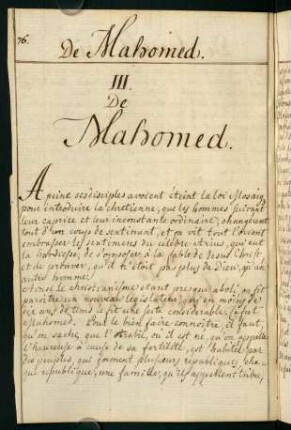 76. De Mahomed.
III.
De
Mahomed.
A peine ses disciples avoient éteint la loi Mosaiq
pour introduire la chretienne, que les hommes suivant
leur caprice et leur inconstante ordinaire, changerent
tout d'un coup de sentiment, et on vit tout l'orient
embrasser les sentimens du celebre Arius, qui eut
la hardiesse, de s'opposer à la fable de Jesus Christ
et de prouver, qu'il n'étoit pas plus Dieu, qu'un
autre homme.
le christianisme étant presque aboli, on fit
paroitre un nouveau legislateur, qui en moins de
dix ans de tems se fit une secte considerable. Ce fut
Mahomed. Pour le bien faire connoitre, il faut,
qu'on sache, que l'Arabie, où il est né, qu'on appelle
l'heureuse à cause de sa fertilité, est habitée par
des peuples, qui forment plusieurs republiques, cha-
que republique, une famille, qu'ils appellent tribu,